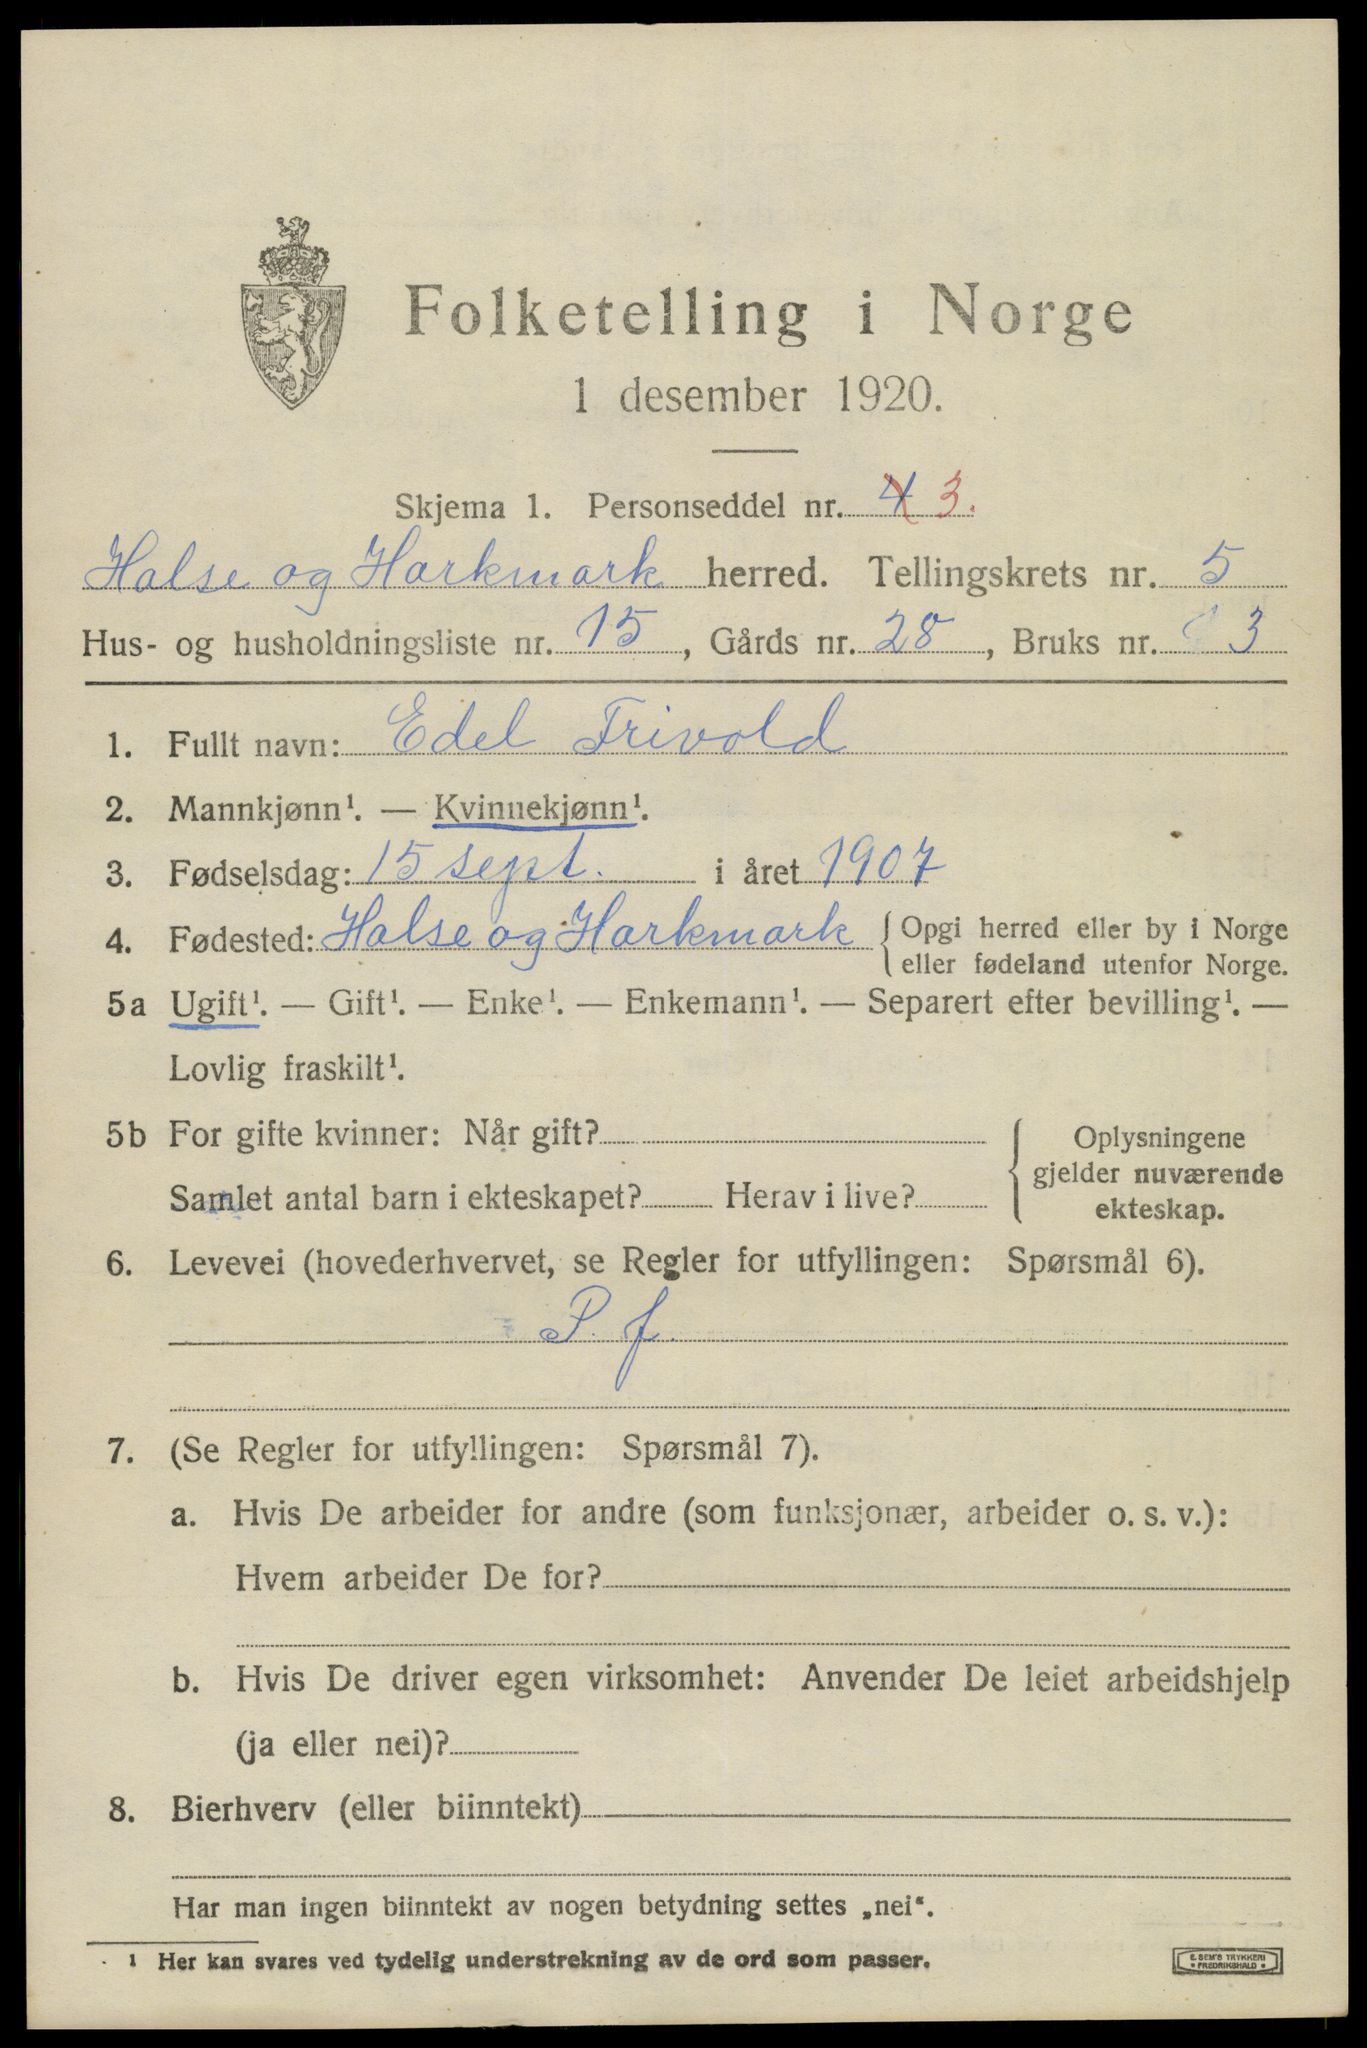 Folketelling i Norge
1 desember 1920.
Skjema 1. Personseddel nr. 4 3.
Halse og Harkmark herred. Tellingskrets nr. 5
Hus- og husholdningsliste nr. 15, Gårds nr. 28, Bruks nr. 3
1. Fullt navn: Edel Trivold
2. Mannkjønn¹. — Kvinnekjønn¹.
3. Fødselsdag: 15 sept. i året 1907
4. Fødested: Halse og Harkmark { Opgi herred eller by i Norge
eller fødeland utenfor Norge.
5a Ugift¹. — Gift¹. — Enke¹. — Enkemann¹. — Separert efter bevilling¹. —
Lovlig fraskilt¹.
5b For gifte kvinner: Når gift?
Samlet antal barn i ekteskapet? Herav i live?
Oplysningene
gjelder nuværende
ekteskap.
6. Levevei (hovederhvervet, se Regler for utfyllingen: Spørsmål 6).
P. f.
7. (Se Regler for utfyllingen: Spørsmål 7).
a. Hvis De arbeider for andre (som funksjonær, arbeider o. s. v.):
Hvem arbeider De for?
b. Hvis De driver egen virksomhet: Anvender De leiet arbeidshjelp
(ja eller nei)?
8. Bierhverv (eller biinntekt)
Har man ingen biinntekt av nogen betydning settes „nei“.
¹ Her kan svares ved tydelig understrekning av de ord som passer.
E. SEM'S TRYKKERI
• FREDRIKSHALD •